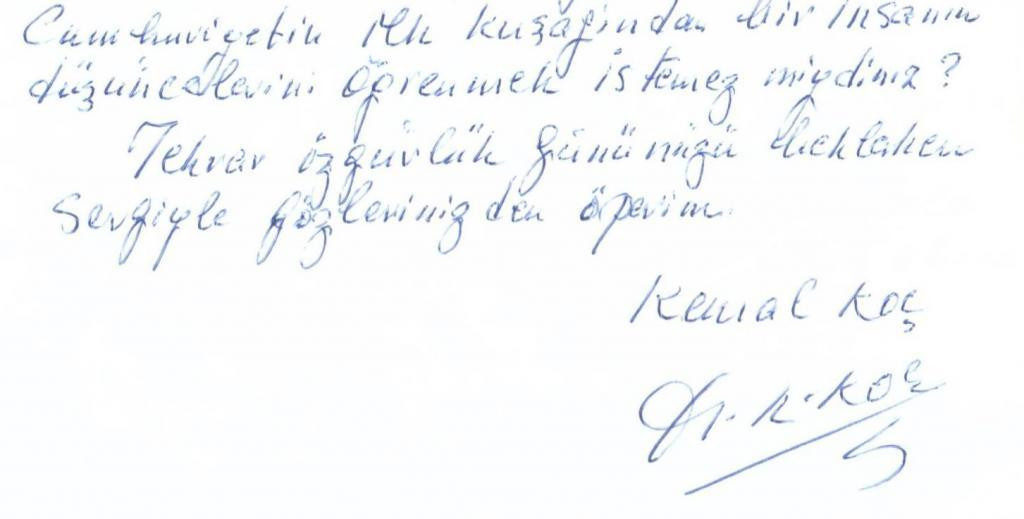 Cumhuriyetin ilk kuşağından bir insanın
düşüncelerini öğrenmek istemez miydiniz?
Tekrar özgürlük gününüzü beklerken
Sevgiyle gözlerinizden öperim.
Kemal Koç
Dr. K. Koç